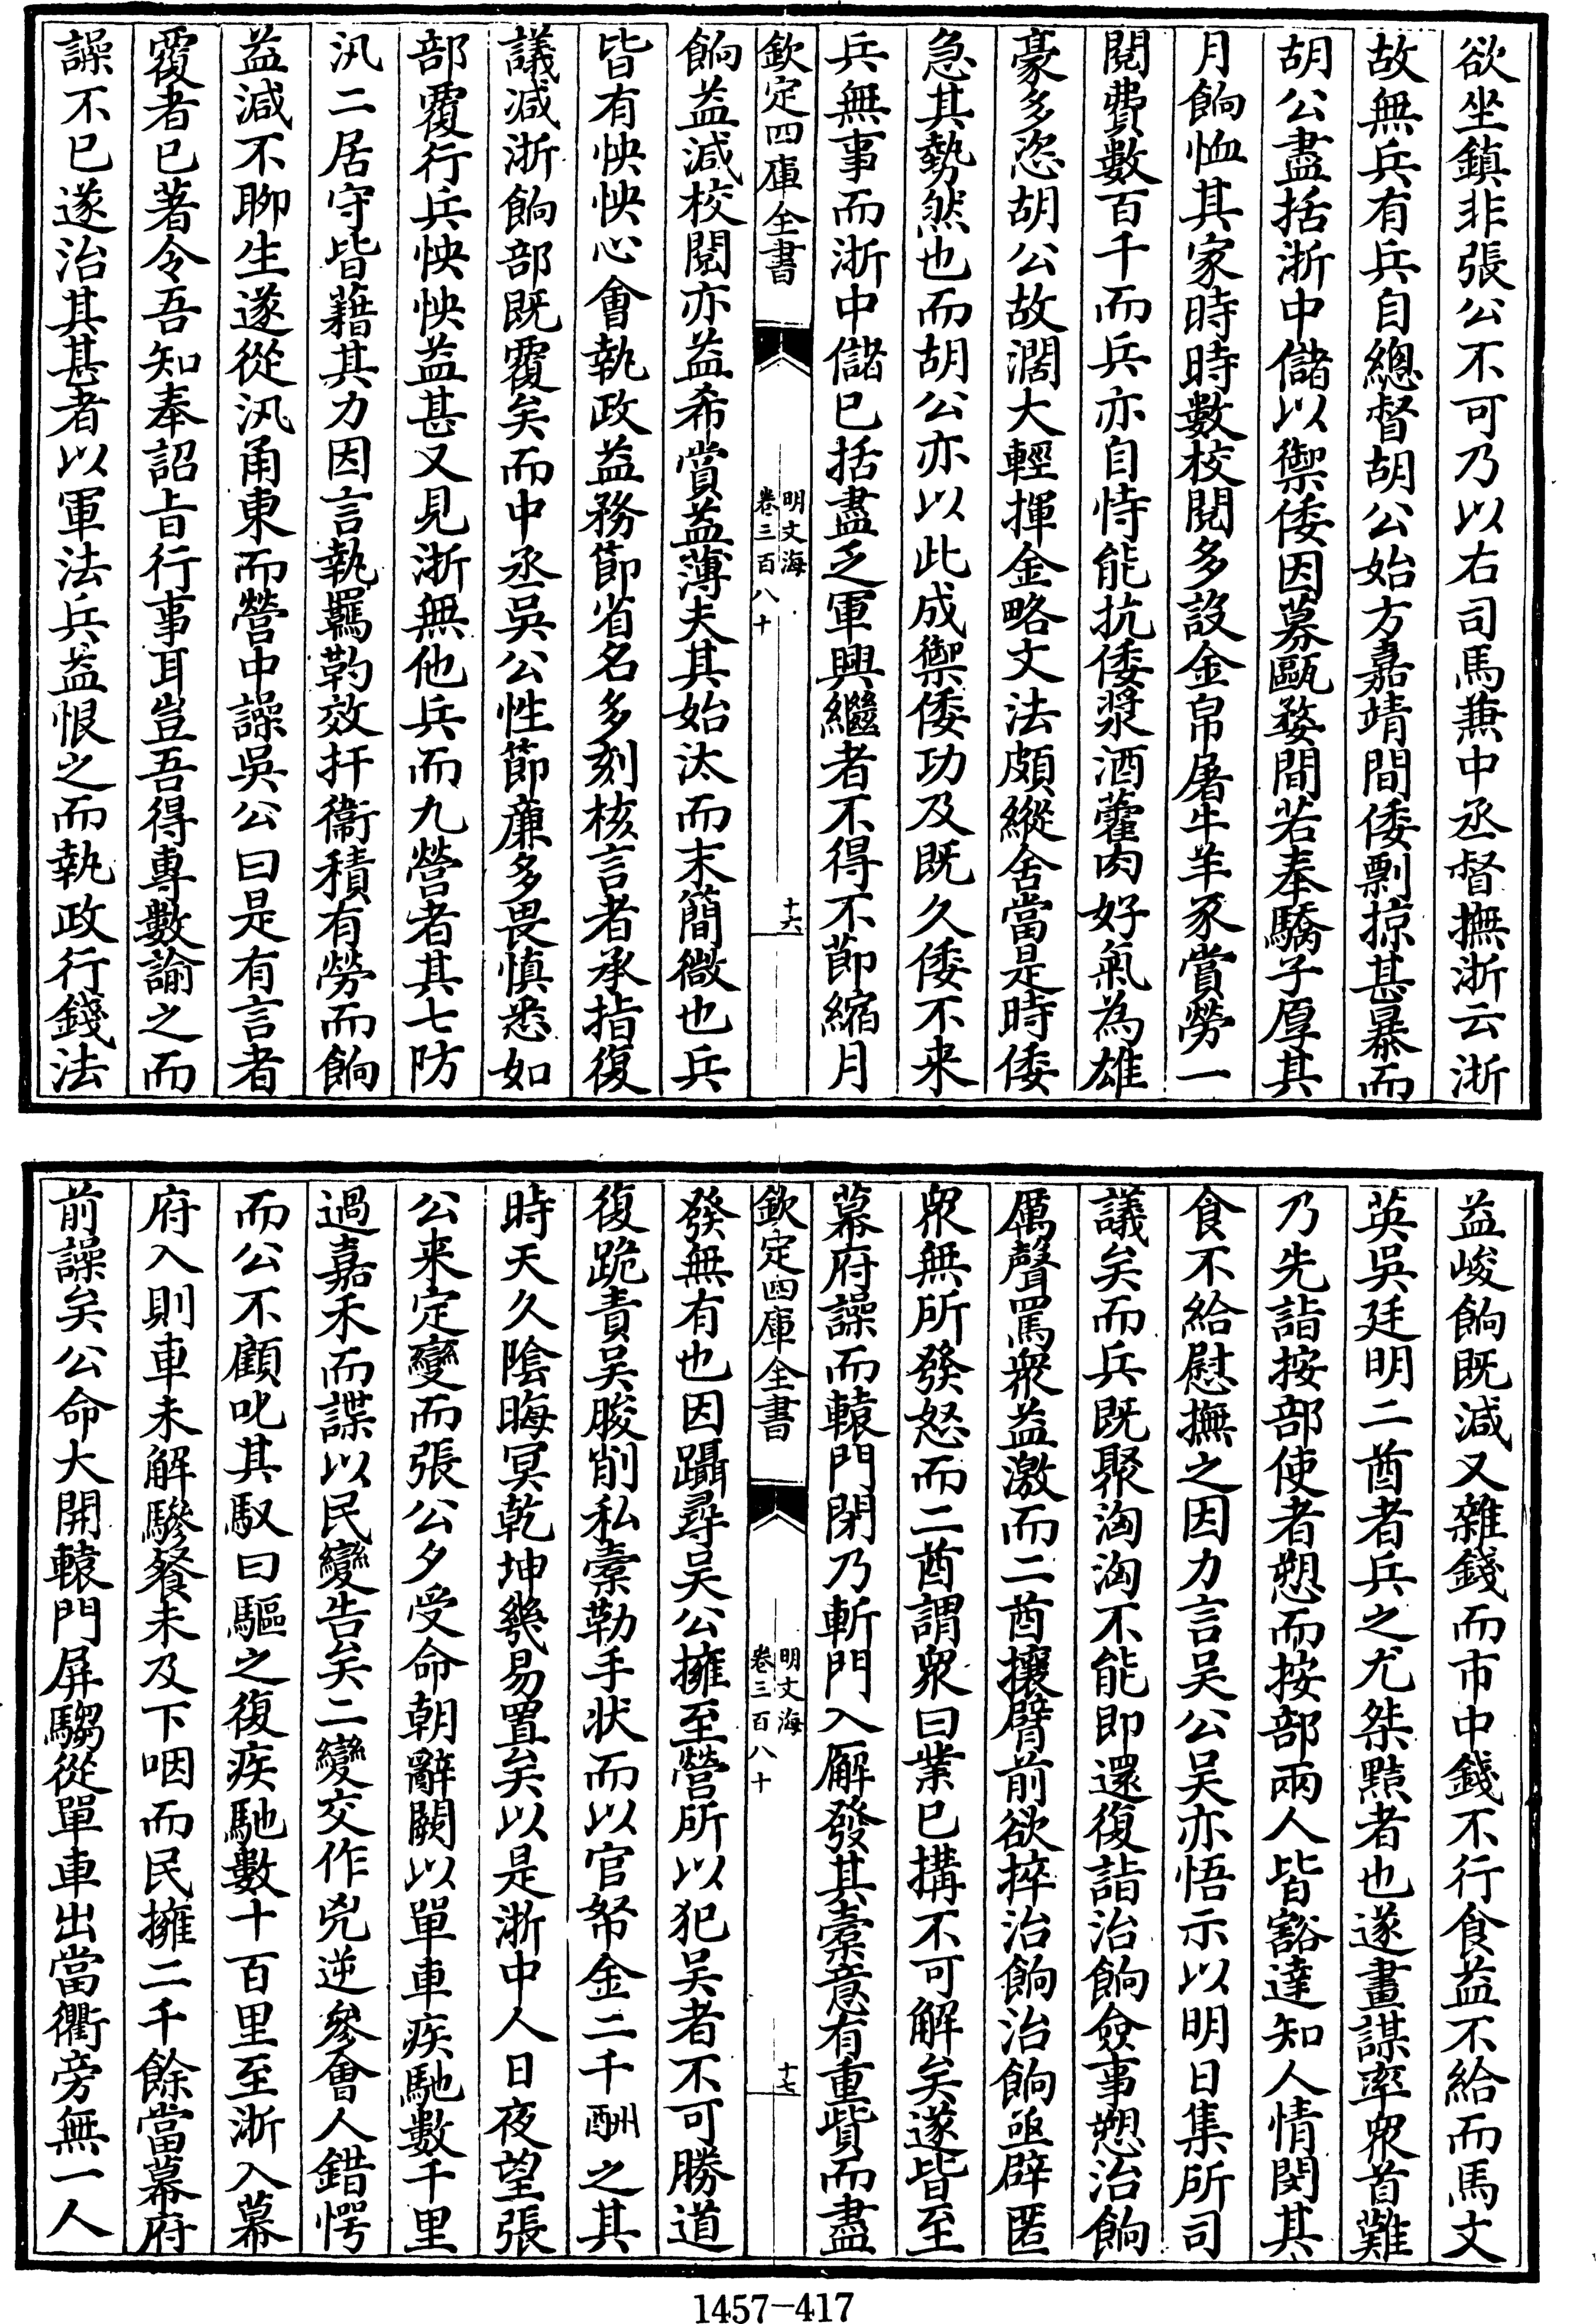 欲坐鎮非張公不可乃以右司馬兼中丞督撫浙云浙
故無兵有兵自總督胡公始方嘉靖間倭剽掠甚暴而
胡公盡括浙中儲以禦倭因募甌婺間若奉驕子厚其
月餉恤其家時時數校閱多設金帛屠牛羊豕賞勞一
閱費數百千而兵亦自恃能抗倭漿酒藿肉好氣為雄
豪多恣胡公故濶大輕揮金略文法頗縱舍當是時倭
急其勢然也而胡公亦以此成禦倭功及既久倭不来
兵無事而浙中儲已括盡乏軍興繼者不得不節縮月
欽定四庫全書
明文海
卷三百八十
十六
餉益減校閱亦益希賞益薄夫其始汰而末簡微也兵
皆有怏怏心會執政益務節省名多刻核言者承指復
議减浙餉部既覆矣而中丞吳公性節亷多畏慎悉如
部覆行兵怏怏益甚又見浙無他兵而九營者其七防
汛二居守皆藉其力因言執羈靮效扞衞積有勞而餉
益減不聊生遂從汛甬東而營中譟吳公曰是有言者
覆者已著令吾知奉詔㫖行事耳豈吾得專數諭之而
譟不已遂治其甚者以軍法兵益恨之而執政行錢法
益峻餉既減又雜錢而市中錢不行食益不給而馬文
英吳廷明二酋者兵之尤桀黠者也遂畫謀率衆首難
乃先詣按部使者愬而按部兩人皆豁達知人情閔其
食不給慰撫之因力言吴公吴亦悟示以明日集所司
議矣而兵既聚洶洶不能即還復詣治餉僉事愬治餉
厲聲罵衆益激而二酋攘臂前欲捽治餉治餉亟辟匿
衆無所發怒而二酋謂衆曰業已搆不可解矣遂皆至
幕府譟而轅門閉乃斬門入廨發其槖意有重貲而盡
欽定四庫全書
明文海
卷三百八十
十七
發無有也因躡尋吴公擁至營所以犯吴者不可勝道
復跪責吴朘削私槖勒手状而以官帑金二千酬之其
時天久隂晦冥乾坤幾易置矣以是浙中人日夜望張
公来定變而張公夕受命朝辭闕以單車疾馳數千里
過嘉禾而諜以民變告矣二變交作兇逆參會人錯愕
而公不顧叱其馭曰驅之復疾馳數十百里至浙入幕
府入則車未解驂餐未及下咽而民擁二千餘當幕府
前譟矣公命大開轅門屏騶從單車出當衢旁無一人
1457-417